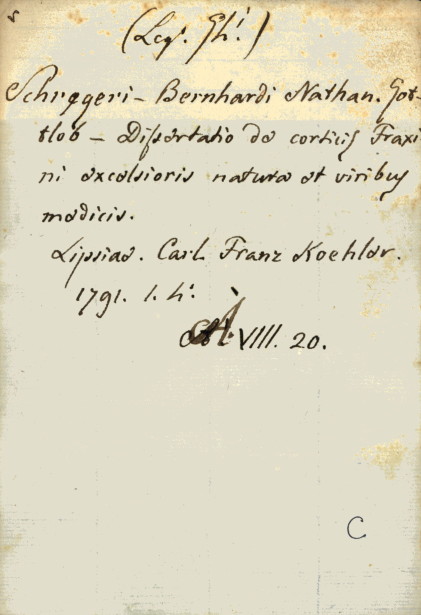 Schregeri - Bernhardi Nathan. Got-
tlob - Dissertatio de corticis Fraxi
ni excelsioris natura et viribus
medicis.
Lipsiae. Carl Franz Koehler.
1791. 1.
VIII. 20.
C